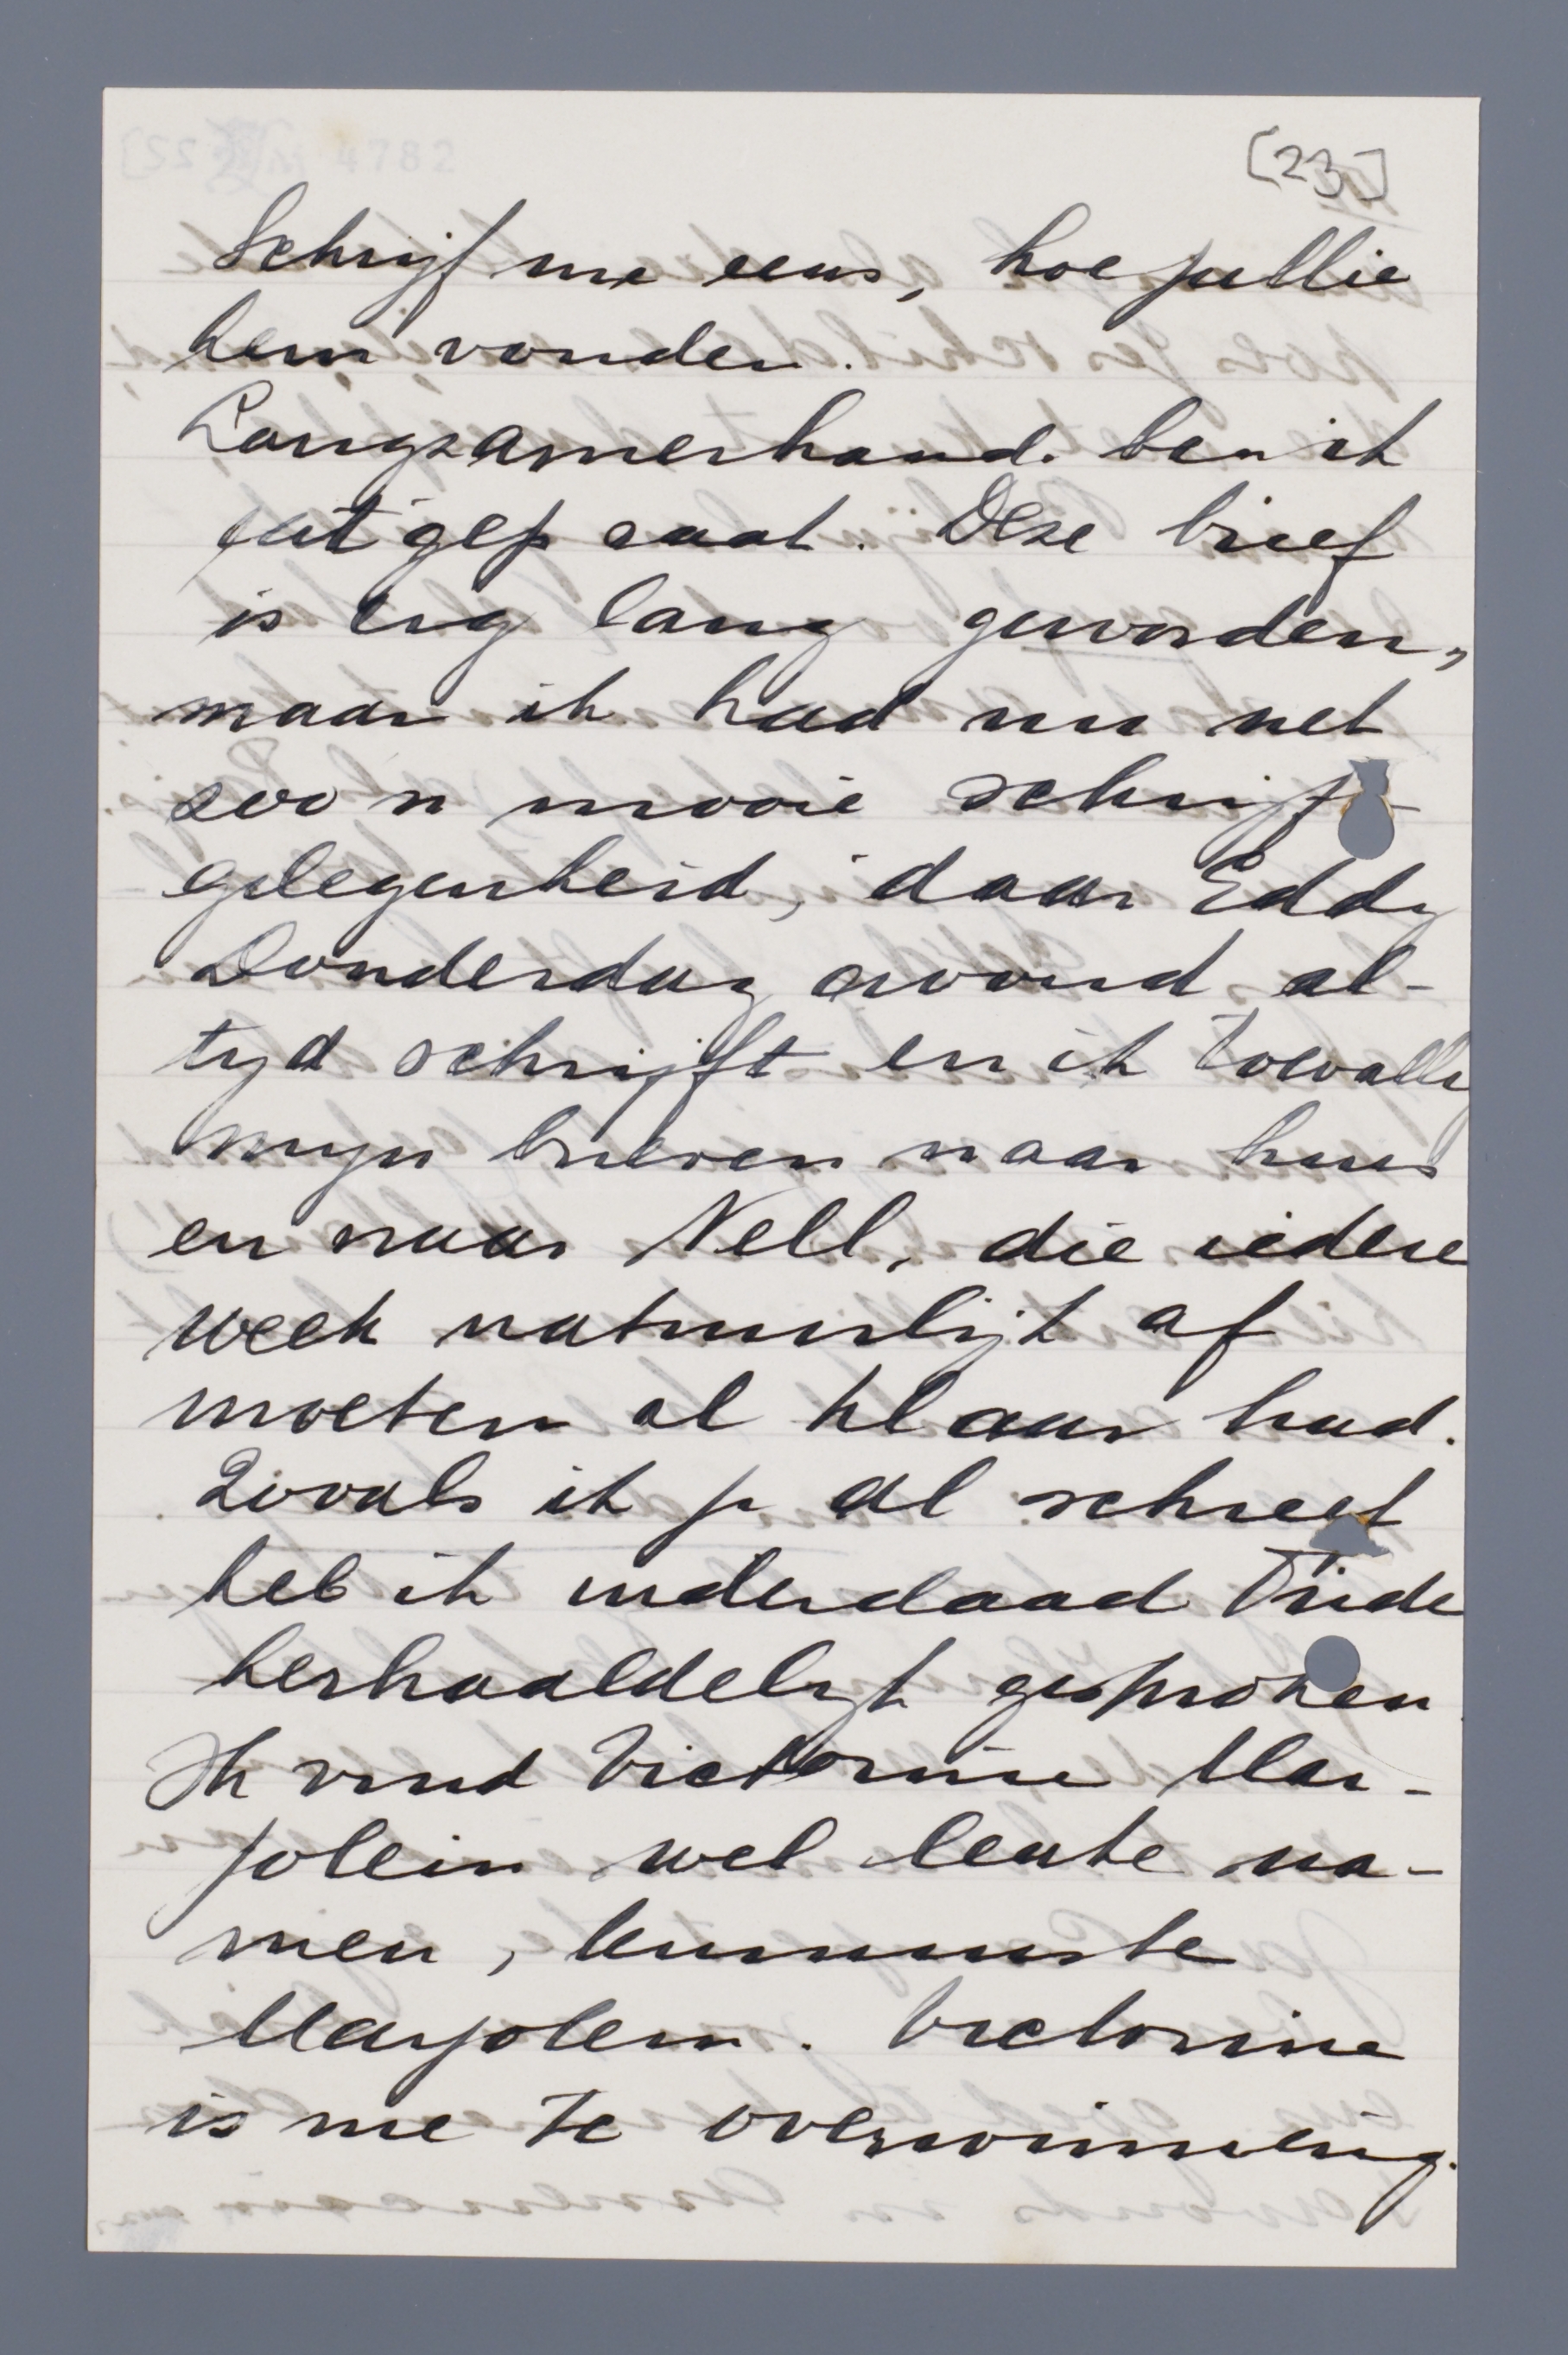 [23]
Schrijf me eens, hoe jullie
hem vonden.
Langzamerhand ben ik
uitgepraat. Deze brief
is erg lang geworden,
maar ik had nu net
zoo'n mooie schrijf-
gelegenheid, daar Eddy
Donderdag avond al-
tyd schrijft en ik toevallig
mijn brieven naar huis
en naar Nell, die iedere
week natuurlijk af
moeten al klaar had.
Zooals ik je al schreef
heb ik inderdaad Trude
herhaaldelijk gesproken
Ik vind Victorine Mar-
jolein wel leuke na-
men, tenminste
Marjolein. Victorine
is me te overwinning.